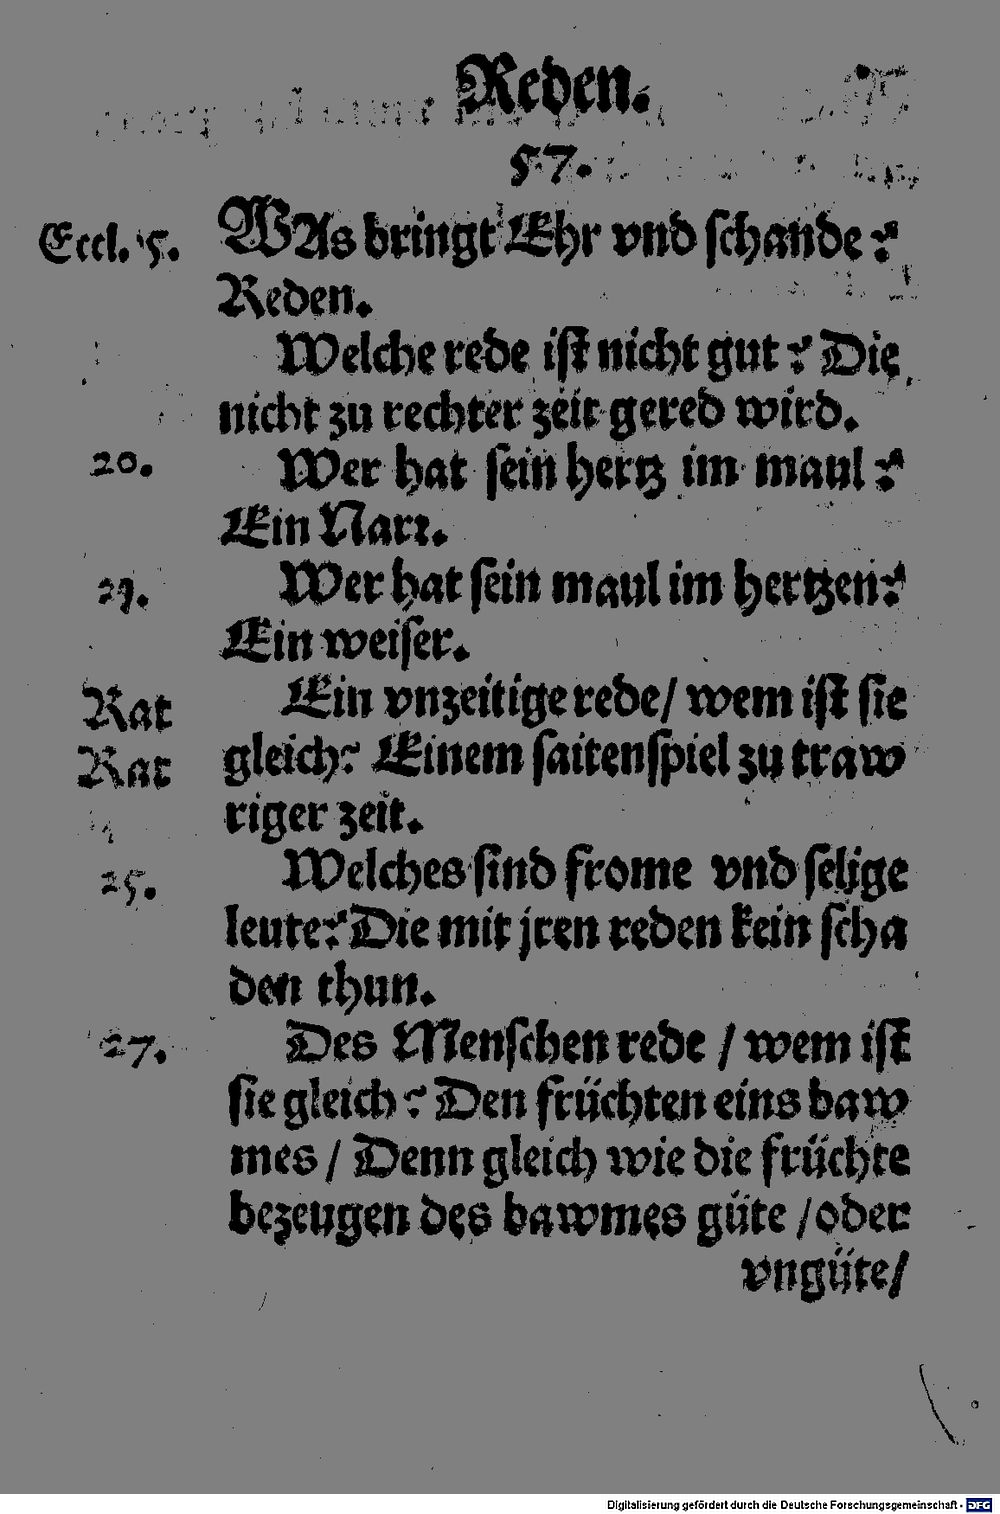 Reden.
57.
Eccl. 5. WAs bringt Ehr vnd schande?
Reden.
Welche rede ist nicht gut? Die
nicht zu rechter zeit gered wird.
20. Wer hat sein hertz im maul?
Ein Narr.
29. Wer hat sein maul im hertzen?
Ein weiser.
Rat Ein vnzeitige rede/ wem ist sie
Rat gleich? Einem saitenspiel zu traw
riger zeit.
25. Welches sind frome vnd selige
leute? Die mit jren reden kein scha
den thun.
27. Des Menschen rede / wem ist
sie gleich? Den früchten eins baw
mes / Denn gleich wie die früchte
bezeugen des bawmes güte /oder
vngüte/
Digitalisierung gefördert durch die Deutsche Forschungsgemeinschaft - DFG